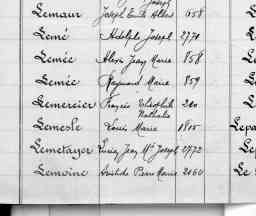 Joseph
Lemaur Joseph Emile Albert 658
Lemé Adolphe Joseph 2770
Lemée Alexis Jean Marie 858
Lemée Raymond Marie 859
Lemercier François Théophile 220
Nathalie
Lemesle Louis Marie 1805
Lemetayer Jean Mie Joseph 2772
Lemoine Aristide Pierre Marie 2060
Lepa
Le